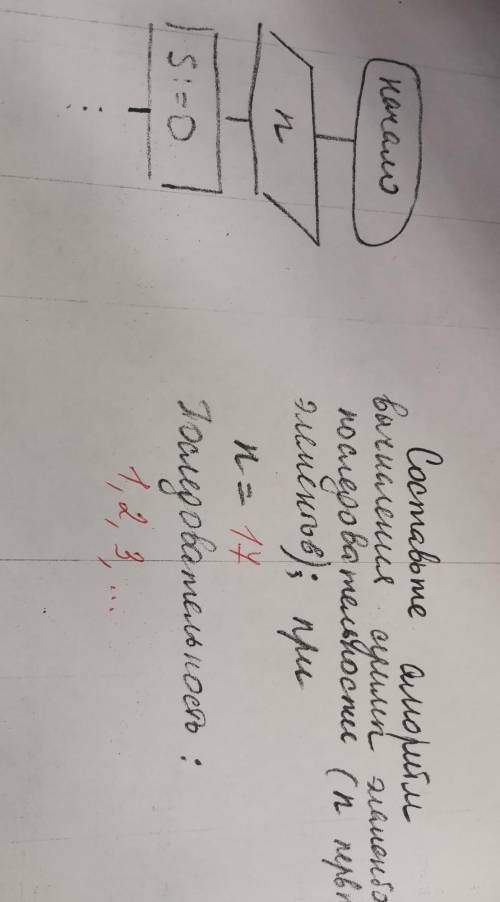 начало
n
S:=0
Составьте алгоритм
вычисления суммы элементо
последовательности (n перв
элементов); при
n = 17
Последовательность:
1, 2, 3, ...